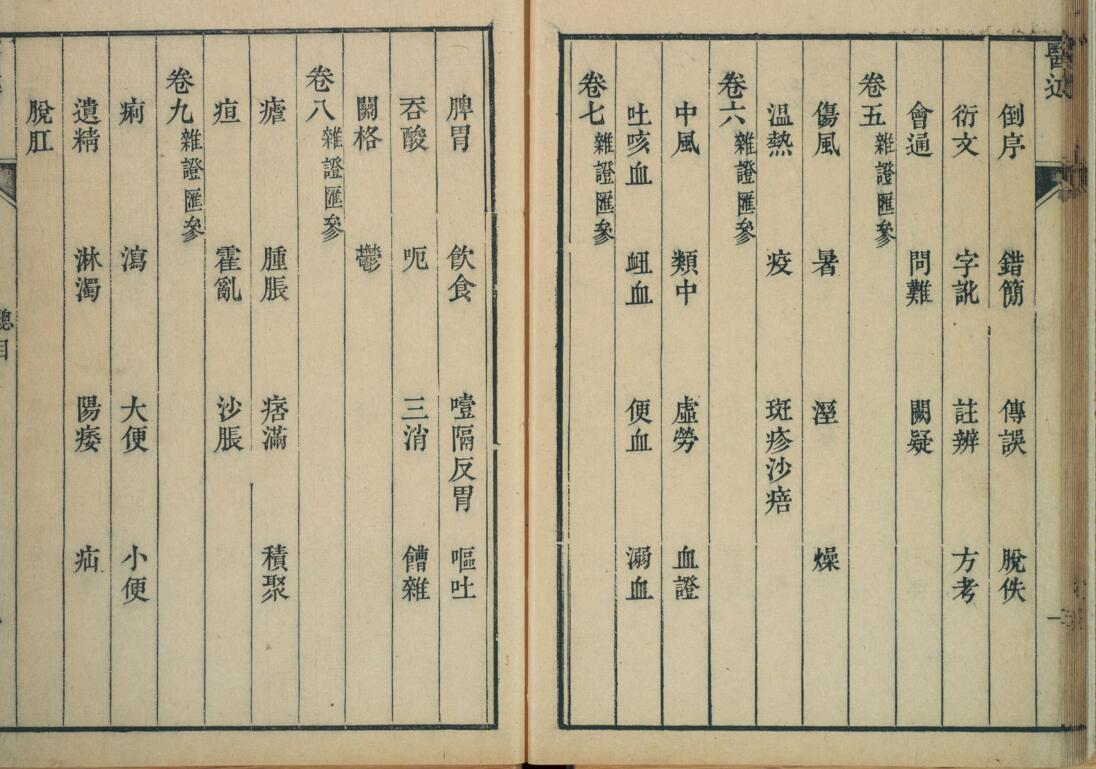 醫述
倒序 錯簡 傳誤 脫佚
衍文 字訛 註辨 方考
會通 問難 闕疑
卷五 雜證匯參
傷風 暑 溼 燥
溫熱 疫 斑疹沙㾦
卷六 雜證匯參
中風 類中 虛勞 血證
吐咳血 衄血 便血 溺血
卷七 雜證匯參
脾胃 飲食 噎隔反胃 嘔吐
吞酸 呃 三消 饞雜
關格 鬱
卷八 雜證匯參
瘧 腫脹 痞滿 積聚
疸 霍亂 沙脹
卷九 雜證匯參
痢 瀉 大便 小便
遺精 淋濁 陽痿 疝
脫肛
總目